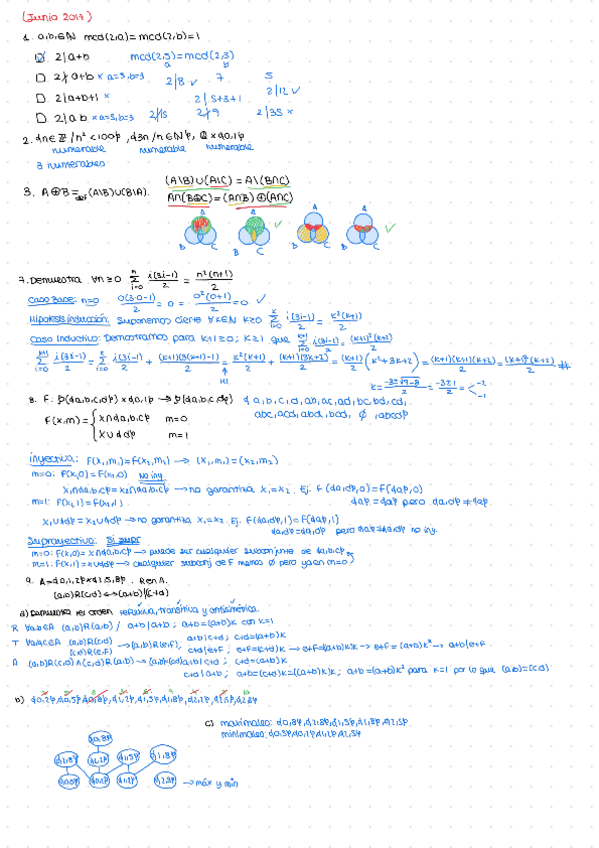 (Junio 2017)
1. a,b,∈ℕ mcd(2,a)=mcd(2,b)=1
☑ 2|a+b mcd(2,5)=mcd(2,3)
a b
☐ 2∤a+b × a=5,b=3 2|8 ✓ 7 5
☐ 2|a+b+1 × 2|5+3+1 2|12 ✓
☐ 2|ab × a=5,b=3 2∤15 2∤9 2|35 ×
2. {n∈ℤ/n²<100}, {3n/n∈ℕ}, ℚ×{0,1}
numerable numerable numerable
3 numerables
3. A⊕B=def (A\B)∪(B\A). (A\B)∪(A\C)=A\(B∩C)
A∩(B⊕C)=(A∩B)⊕(A∩C)
A A A A
B C B C B C B C
7. Demuestra ∀n≥0 Σ i=0 n i(3i-1)/2 = n²(n+1)/2
Caso Base: n=0 0(3·0-1)/2=0= 0²(0+1)/2=0 ✓
Hipótesis inducción: Suponemos cierto ∀k∈ℕ k≥0 Σ i=0 k i(3i-1)/2 = k²(k+1)/2
Caso Inductivo: Demostramos para k+1≥0; k≥1 que Σ i=0 k+1 i(3i-1)/2 = (k+1)²(k+2)/2
Σ i=0 k+1 i(3i-1)/2 = Σ i=0 k i(3i-1)/2 + (k+1)(3(k+1)-1)/2 = k²(k+1)/2 + (k+1)(3k+2)/2 = (k+1)(k²+3k+2)/2 = (k+1)(k+1)(k+2)/2 = (k+1)²(k+2)/2
HI
k= -3±√9-8/2 = -3±1/2 = -2 -1
8. F: P({a,b,c,d})×{0,1}→P({a,b,c,d})
F(x,m)= { x∩{a,b,c} m=0
x∪{d} m=1
{a,b,c,d,ab,ac,ad,bc,bd,cd,
abc,acd,abd,bcd, Ø, abcd}
inyectiva: F(x1,m1)=F(x2,m2) → (x1,m1)=(x2,m2)
m=0: F(x1,0)=F(x2,0) No iny.
x1∩{a,b,c}=x2∩{a,b,c} → no garantiza x1=x2. Ej. F({a,d},0)=F({a},0)
m=1: F(x1,1)=F(x2,1) {a}={a} pero {a,d}≠{a}
x1∪{d}=x2∪{d} → no garantiza x1=x2. Ej. F({a,d},1)=F({a},1)
{a,d}={a,d} pero {a}≠{a,d} no iny.
Suprayectiva: Si supr
m=0: F(x,0)=x∩{a,b,c} → puede ser cualquier subconjunto de {a,b,c}
m=1: F(x,1)=x∪{d} → cualquier subconj de F menos Ø pero ya en m=0
9. A={0,1,2}×{2,5,8}. R en A.
(a,b)R(c,d)↔(a+b)|(c+d)
a) Demuestra rel orden reflexiva, transitiva y antisimétrica.
R ∀a,b∈A (a,b)R(a,b) / a+b|a+b; a+b=(a+b)k con k=1
T ∀a,b,c∈A (a,b)R(c,d) a+b|c+d; c+d=(a+b)k
(c,d)R(e,f) →(a,b)R(e,f), c+d|e+f; e+f=(c+d)k → e+f=(a+b)k·k → e+f=(a+b)k² → a+b|e+f
A (a,b)R(c,d)∧(c,d)R(a,b)→(a,b)=(c,d) a+b|c+d; c+d=(a+b)k
c+d|a+b; a+b=(c+d)k=((a+b)k)k; a+b=(a+b)k² para k=1 por lo que (a,b)=(c,d)
b) {0,2},{0,5},{0,8},{1,2},{1,5},{1,8},{2,2},{2,5},{2,8}
c) maximales: {0,8},{2,8},{1,5},{1,8},{2,5}
minimales: {0,5},{0,2},{1,2},{2,5}
0,8
2,8 2,2 1,5 1,8
0,5 0,2 1,2 → máx y min